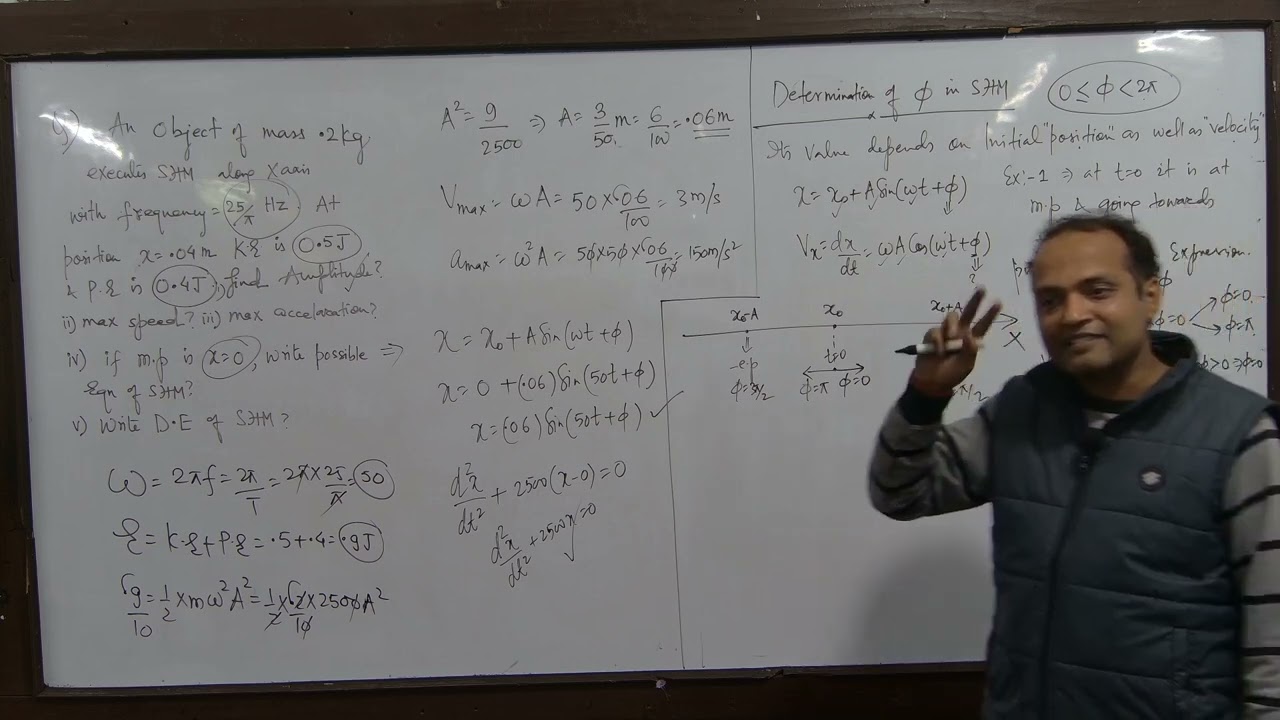 9) An Object of mass .2kg.
executes SHM along Xaxis
with frequency = 25/π Hz At
position x = .04m K.E is 0.5J
& P.E is 0.4J, find Amplitude?
ii) max speed? iii) max acceleration?
iv) if m.p is x=0, write possible ⇒
Eqn of SHM?
v) Write D.E of SHM?
ω = 2πf = 2π/T = 2π × 25/π = 50
E = K.E + P.E = .5 + .4 = .9J
9/10 = 1/2 × mω²A² = 1/2 × 2/10 × 2500A²
A² = 9/2500 ⇒ A = 3/50 m = 6/100 = .06m
Vmax = ωA = 50 × 06/100 = 3m/s
amax = ω²A = 50×50×06/100 = 150m/s²
x = x₀ + A Sin(ωt + ϕ)
x = 0 + (.06) Sin(50t + ϕ)
x = (.06) Sin(50t + ϕ) ✓
d²x/dt² + 2500(x-0) = 0
d²x/dt² + 2500x = 0
Determination of ϕ in SHM 0 ≤ ϕ < 2π
Its value depends on Initial "position" as well as "velocity"
x = x₀ + A Sin(ωt + ϕ)
Vx = dx/dt = ωA Cos(ωt + ϕ)
?
Ex:-1 ⇒ at t=0 it is at
m.p & going towards
Expression.
ϕ=0 ϕ=0
ϕ=π
x₀-A x₀ x₀+A
X
t=0
-e.p
ϕ=3π/2 ϕ=π ϕ=0 π/2
>0 ⇒ ϕ=0